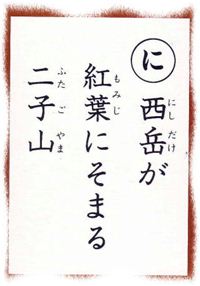 に
西岳が
紅葉にそまる
二子山
にしだけ
もみじ
ふたごやま